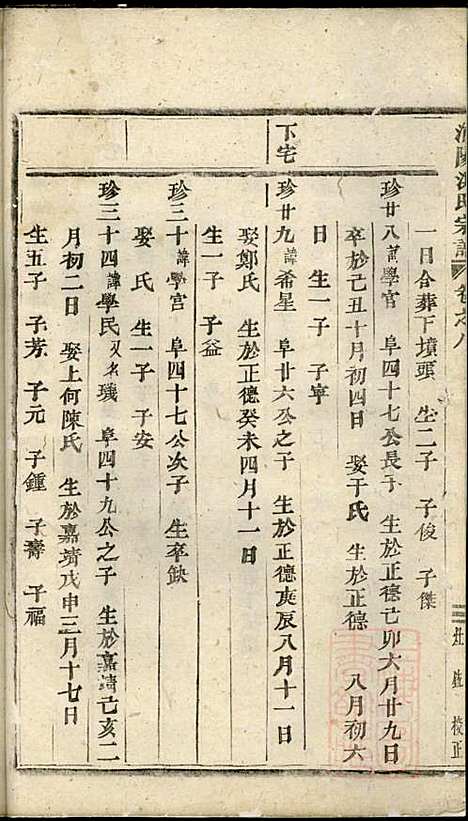 氏宗譜 卷之八
一日合葬下墳頭 生二子 子俊 子傑
珍廿八諱學官 阜四十七公長子 生於正德己卯六月廿九日
卒於己丑十月初四日 娶于氏 生於正德 八月初六
日 生一子 子寧
下宅
珍廿九諱希星 阜廿六公之子 生於正德庚辰八月十一日
娶鄭氏 生於正德癸未四月十一日
生一子 子益
珍三十諱學宫 阜四十七公次子 生卒缺
娶 氏 生一子 子安
珍三十四諱學民又名璣 阜四十九公之子 生於嘉靖己亥二
月初二日 娶上何陳氏 生於嘉靖戊申三月十七日
生五子 子芳 子元 子鍾 子壽 子福
校正